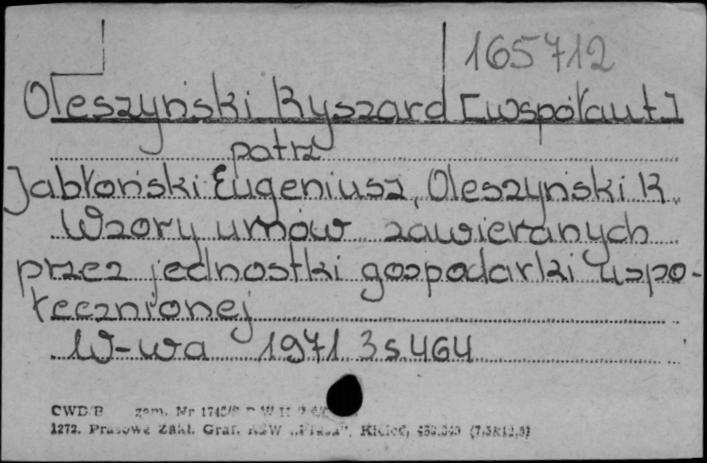 165712
Oleszyński Ryszard [współaut.]
patrz
Jabłoński Eugeniusz, Oleszyński R.
Wzory umów zawieranych
przez jednostki gospodarki uspo-
łecznionej
W-wa 1971 3 s. 464
CWD/B zam. Nr
1272. Prasowe Zakł. Graf. RSW „Prasa”, Kielce,